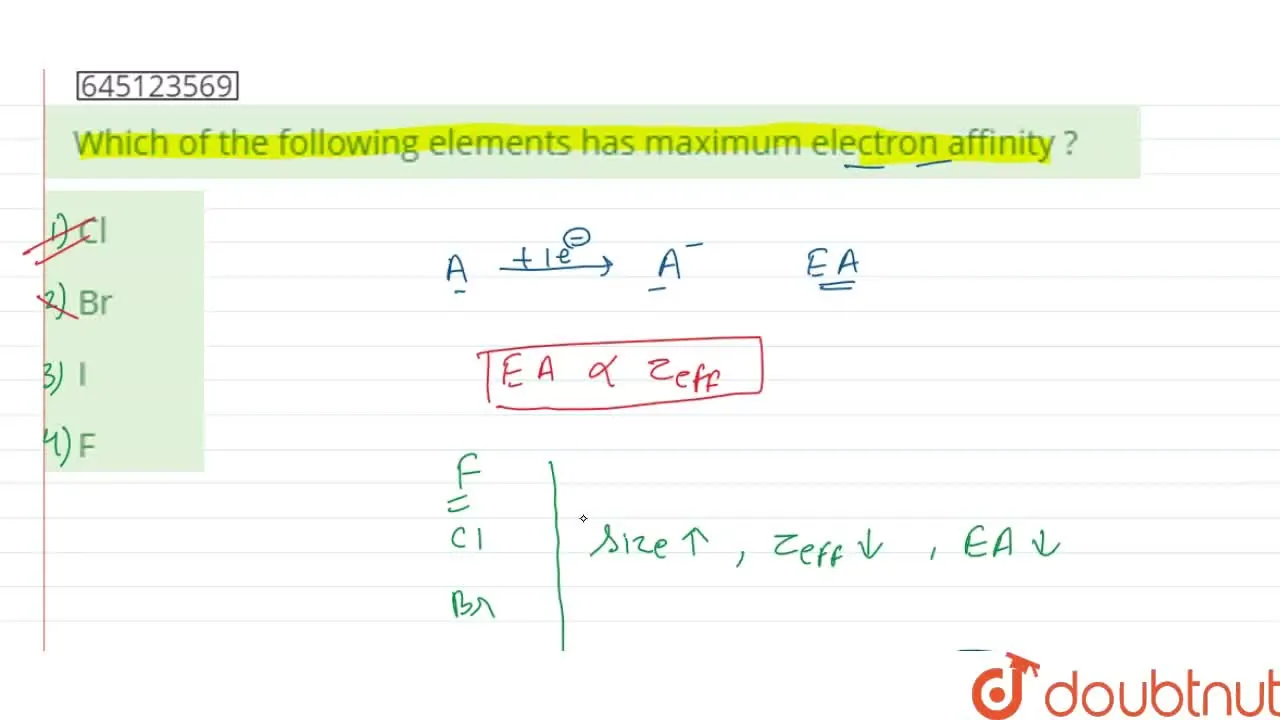 645123569
Which of the following elements has maximum electron affinity ?
1) Cl
2) Br
3) I
4) F
A +1e⊖ → A⁻ EA
EA ∝ Zeff
F
Cl
Br
size ↑ , Zeff ↓ , EA ↓
doubtnut